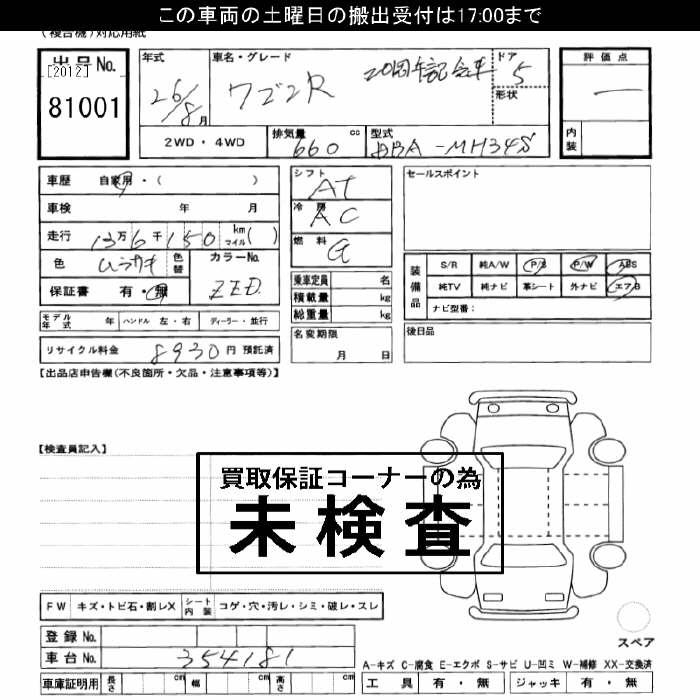 この車両の土曜日の搬出受付は17:00まで
(複合機)対応用紙
出品No.
[2012]
81001
年式 車名・グレード ドア
26/8月 ワゴンR 20周年記念車 5
形状
2WD・4WD 排気量 660 cc 型式 DBA-MH34S
評価点
―
内装
車歴 自家用・( )
車検 年 月
走行 13万6千150 km マイル( )
色 ムラサキ 色替 カラーNo. ZED
保証書 有・無
シフト AT
冷房 AC
燃料 G
乗車定員 名
積載量 kg
総重量 kg
セールスポイント
装備品
S/R 純A/W P/S P/W ABS
純TV 純ナビ 革シート 外ナビ エアB
ナビ型番:
モデル年式 年 ハンドル 左・右 ディーラー・並行
名変期限 月 日
後日品
リサイクル料金 8930円 預託済
【出品店申告欄(不良箇所・欠品・注意事項等)】
【検査員記入】
買取保証コーナーの為
未検査
FW キズ・トビ石・割レX シート内装 コゲ・穴・汚レ・シミ・破レ・スレ
登録No.
車台No. 354181
スペア
A-キズ C-腐食 E-エクボ S-サビ U-凹ミ W-補修 XX-交換済
車庫証明用 長さ cm 幅 cm 高さ cm
工具 有・無 ジャッキ 有・無